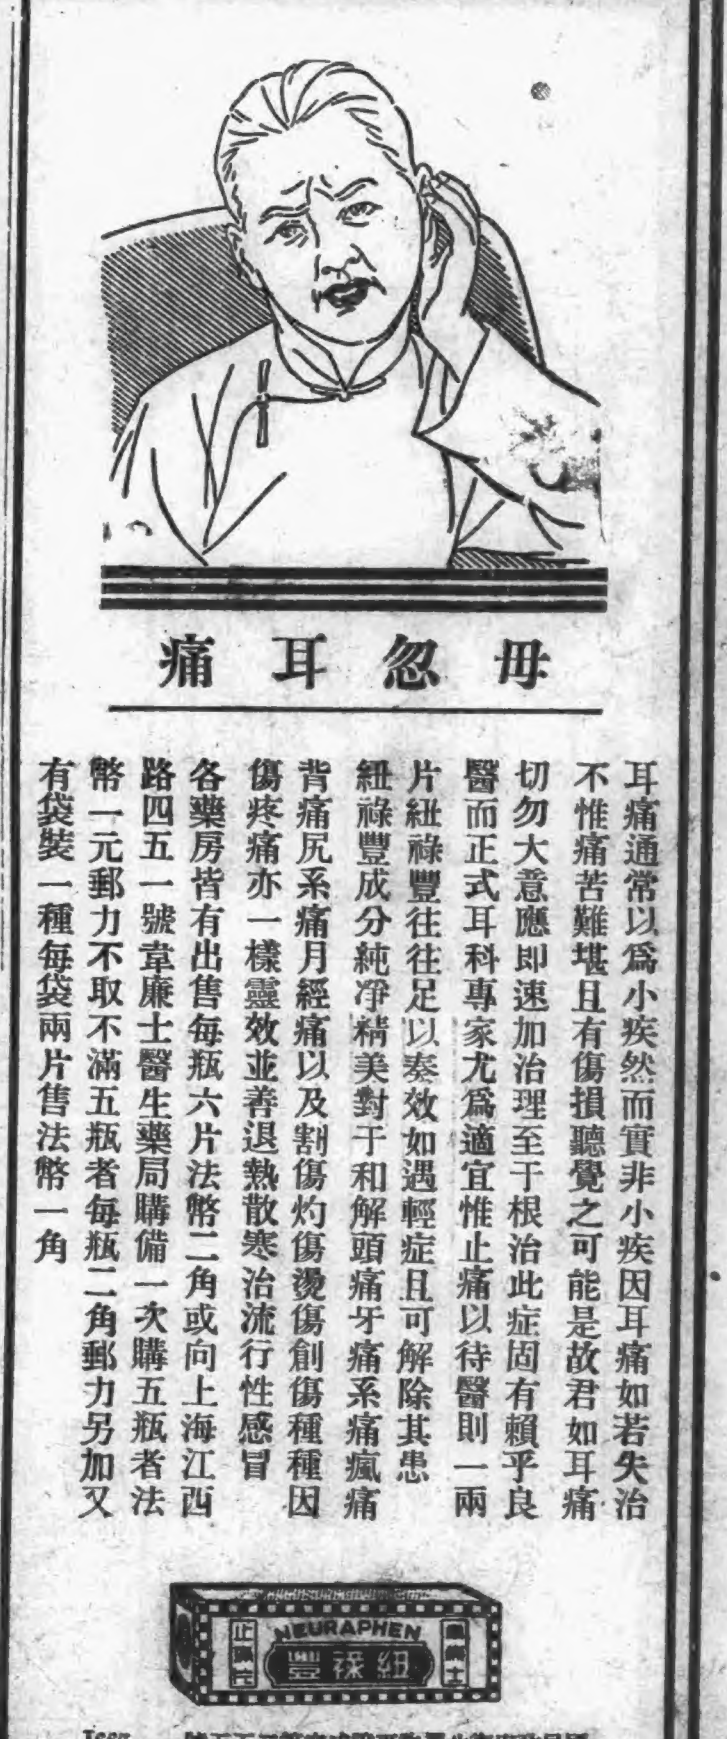 毋忽耳痛
耳痛通常以爲小疾然而實非小疾因耳痛如若失治
不惟痛苦難堪且有傷損聽覺之可能是故君如耳痛
切勿大意應即速加治理至于根治此症固有賴乎良
醫而正式耳科專家尤爲適宜惟止痛以待醫則一兩
片紐祿豐往往足以奏效如遇輕症且可解除其患
紐祿豐成分純凈精美對于和解頭痛牙痛系痛瘋痛
背痛尻系痛月經痛以及割傷灼傷燙傷創傷種種因
傷疼痛亦一樣靈效並善退熱散寒治流行性感冒
各藥房皆有出售每瓶六片法幣二角或向上海江西
路四五一號韋廉士醫生藥局購備一次購五瓶者法
幣一元郵力不取不滿五瓶者每瓶二角郵力另加又
有袋裝一種每袋兩片售法幣一角
NEURAPHEN
紐祿豐